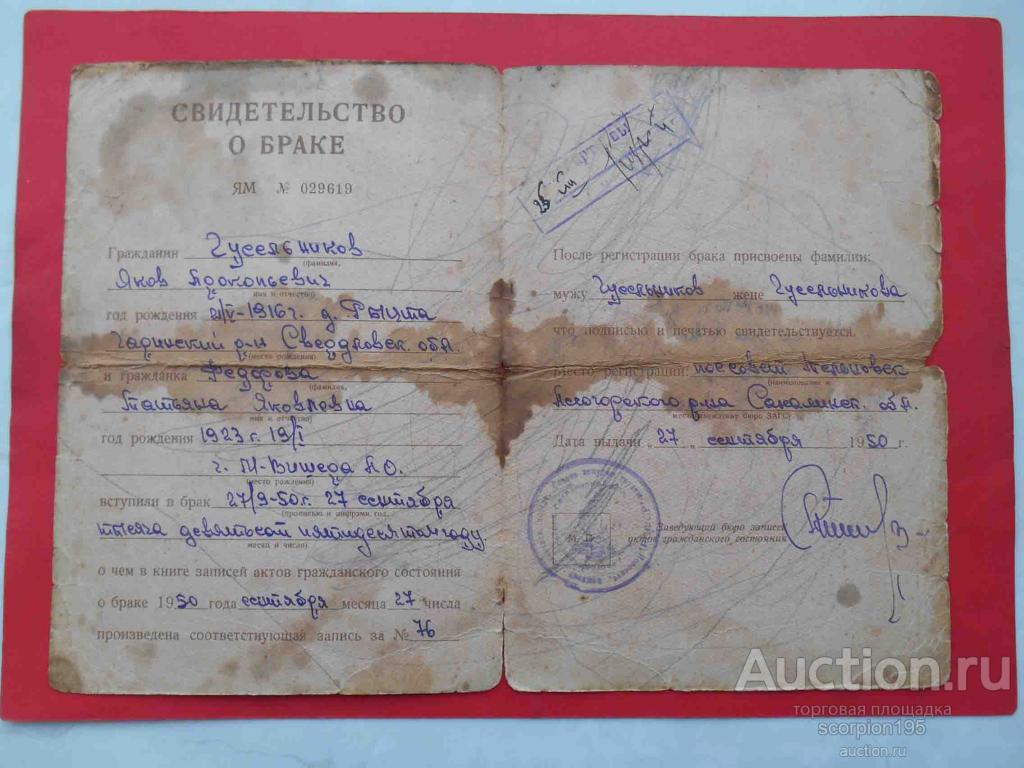 СВИДЕТЕЛЬСТВО
О БРАКЕ
ЯМ № 029619
Гражданин Гусельников
(фамилия,
Яков Прокопьевич
имя и отчество)
год рождения 21/V-1916 г. д.
Гаринский р-н Свердловск. обл.
(место рождения)
и гражданка Федорова
(фамилия,
Татьяна Яковлевна
имя и отчество)
год рождения 1923 г. 19/I
г. М-Вишера Л.О.
(место рождения)
вступили в брак 27/9-50 г. 27 сентября
(прописью и цифрами год,
тысяча девятьсот пятидесятом году
месяц и число)
о чем в книге записей актов гражданского состояния
о браке 1950 года сентября месяца 27 числа
произведена соответствующая запись за № 76
После регистрации брака присвоены фамилии:
мужу Гусельников жене Гусельникова
что подписью и печатью свидетельствуется.
Место регистрации: поссовет
(наименование и
р-на Сахалинск. обл.
местонахождение бюро ЗАГС)
Дата выдачи „27„ сентября 1950 г.
М. П.
Заведующий бюро записи
актов гражданского состояния
Auction.ru
торговая площадка
scorpion195
auction.ru